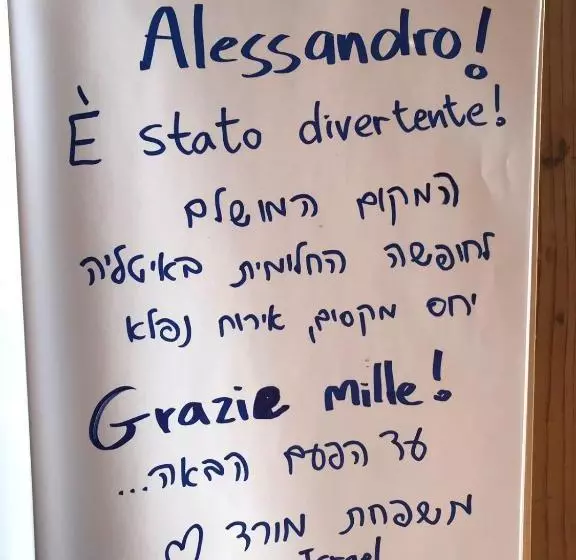 Alessandro!
È stato divertente!
המקום המושלם
לחופשה החלומית באיטליה
יחס מקסים, אירוח נפלא
Grazie Mille!
עד הפעם הבאה...
משפחת מורד ♡
Israel